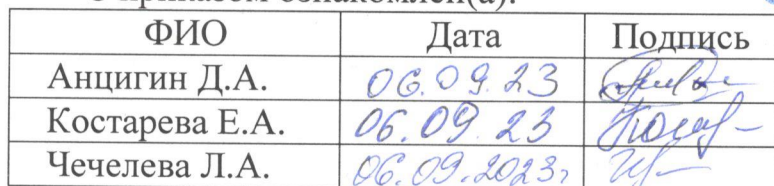 С приказом ознакомлен(а):
ФИО Дата Подпись
Анцигин Д.А. 06.09.23
Костарева Е.А. 06.09.23
Чечелева Л.А. 06.09.2023г